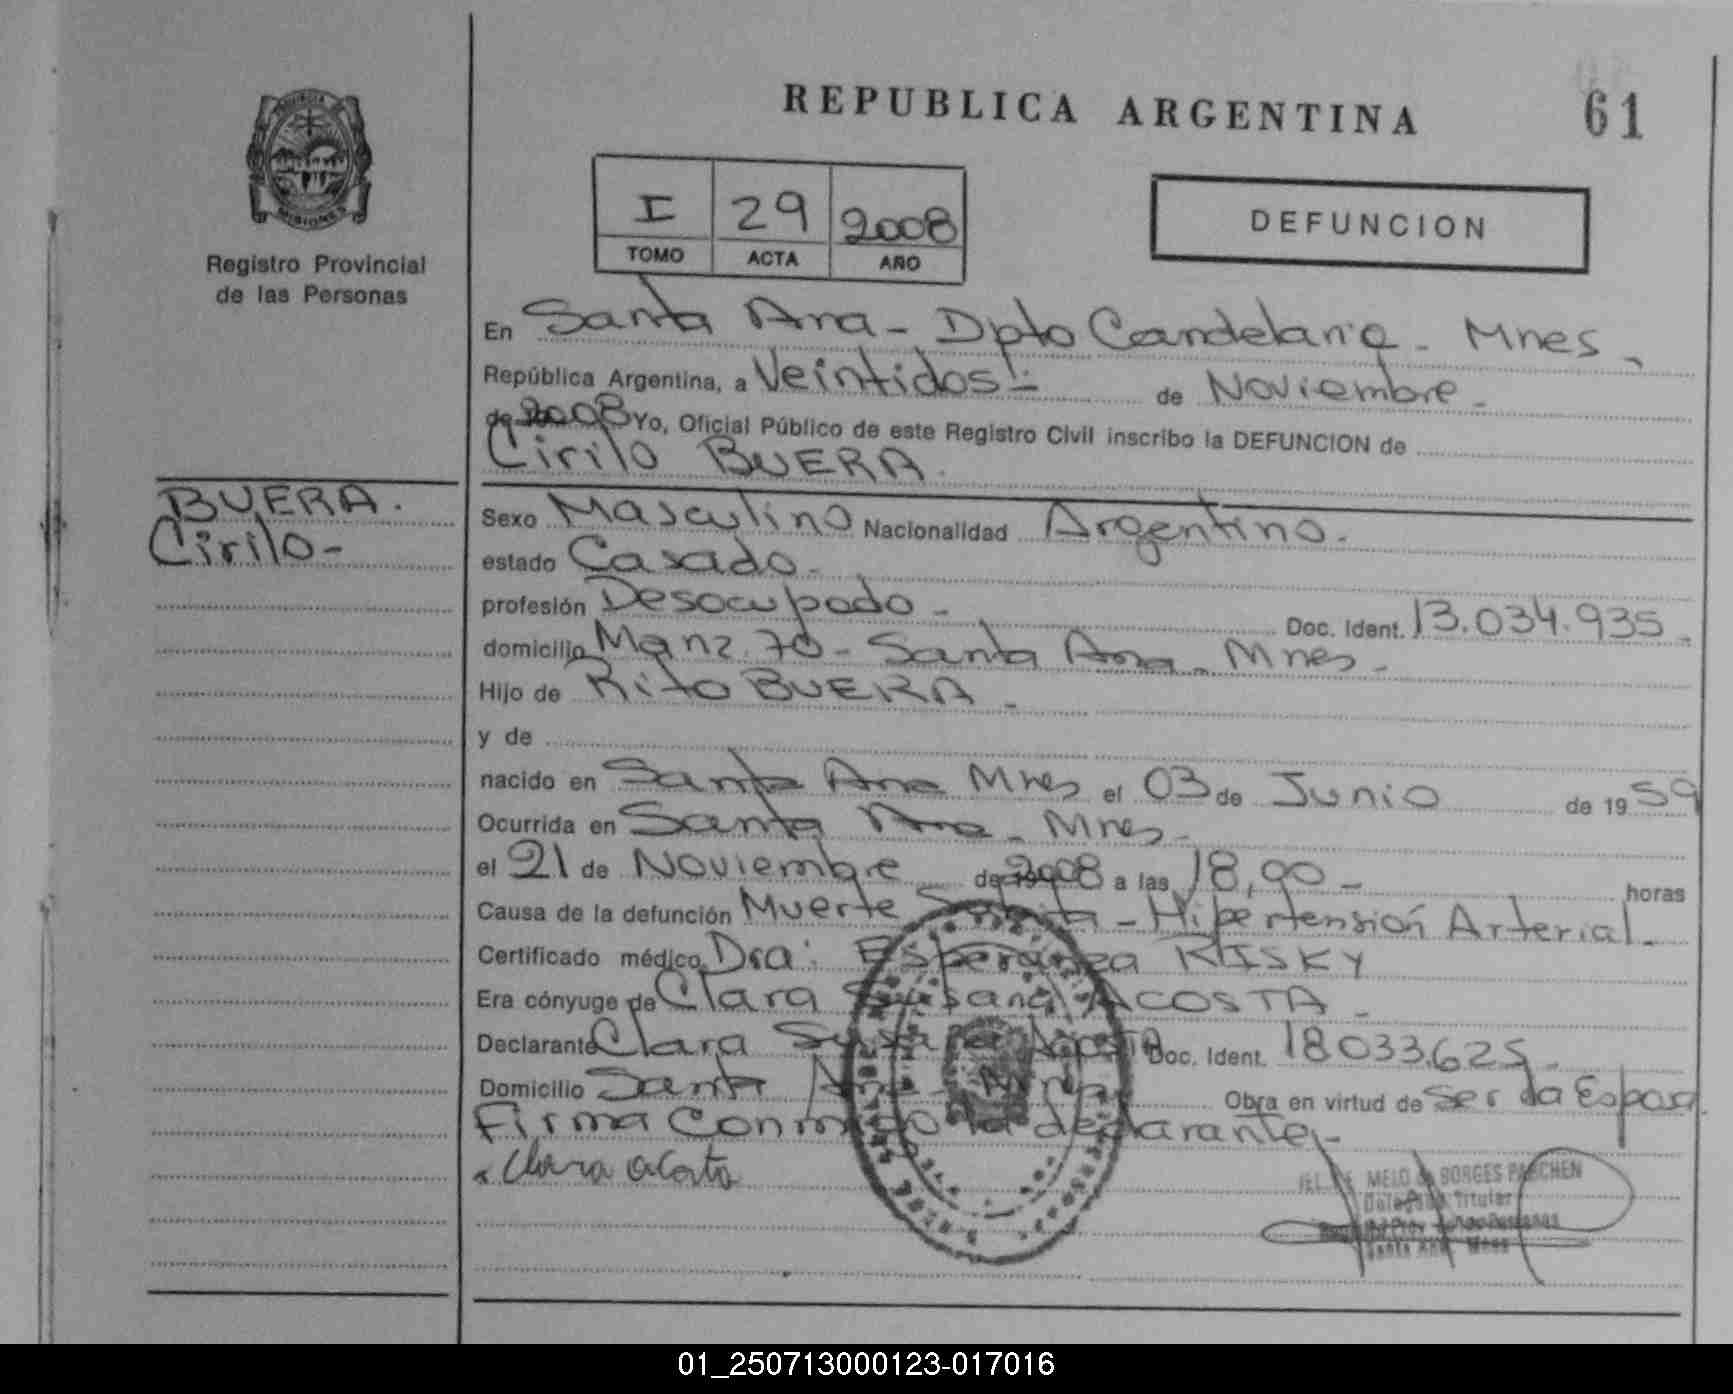 REPUBLICA ARGENTINA
61
MISIONES
Registro Provincial
de las Personas
I 29 2008
TOMO ACTA AÑO
DEFUNCION
En Santa Ana - Dpto Candelaria - Mnes.
República Argentina, a Veintidos de Noviembre -
de 2008 Yo, Oficial Público de este Registro Civil inscribo la DEFUNCION de
Cirilo BUERA.
BUERA.
Cirilo-
Sexo Masculino Nacionalidad Argentino.
estado Casado -
profesión Desocupado - Doc. Ident. 13.034.935 -
domicilio Manz. 70 - Santa Ana - Mnes -
Hijo de Rito BUERA -
y de
nacido en Santa Ana Mnes el 03 de Junio de 19 59
Ocurrida en Santa Ana - Mnes -
el 21 de Noviembre de 2008 a las 18,00 - horas
Causa de la defunción Muerte Subita - Hipertensión Arterial -
Certificado médico Dra: Esperanza KLISKY
Era cónyuge de Clara Susana ACOSTA -
Declarante Clara Susana Acosta Doc. Ident. 18033.625 -
Domicilio Santa Ana - Mnes Obra en virtud de Ser la Esposa
Firma Conmigo la declarante -
Clara acosta
MELO de BORGES PARCHEN
Delegada Titular
Santa Ana Mnes
01_250713000123-017016